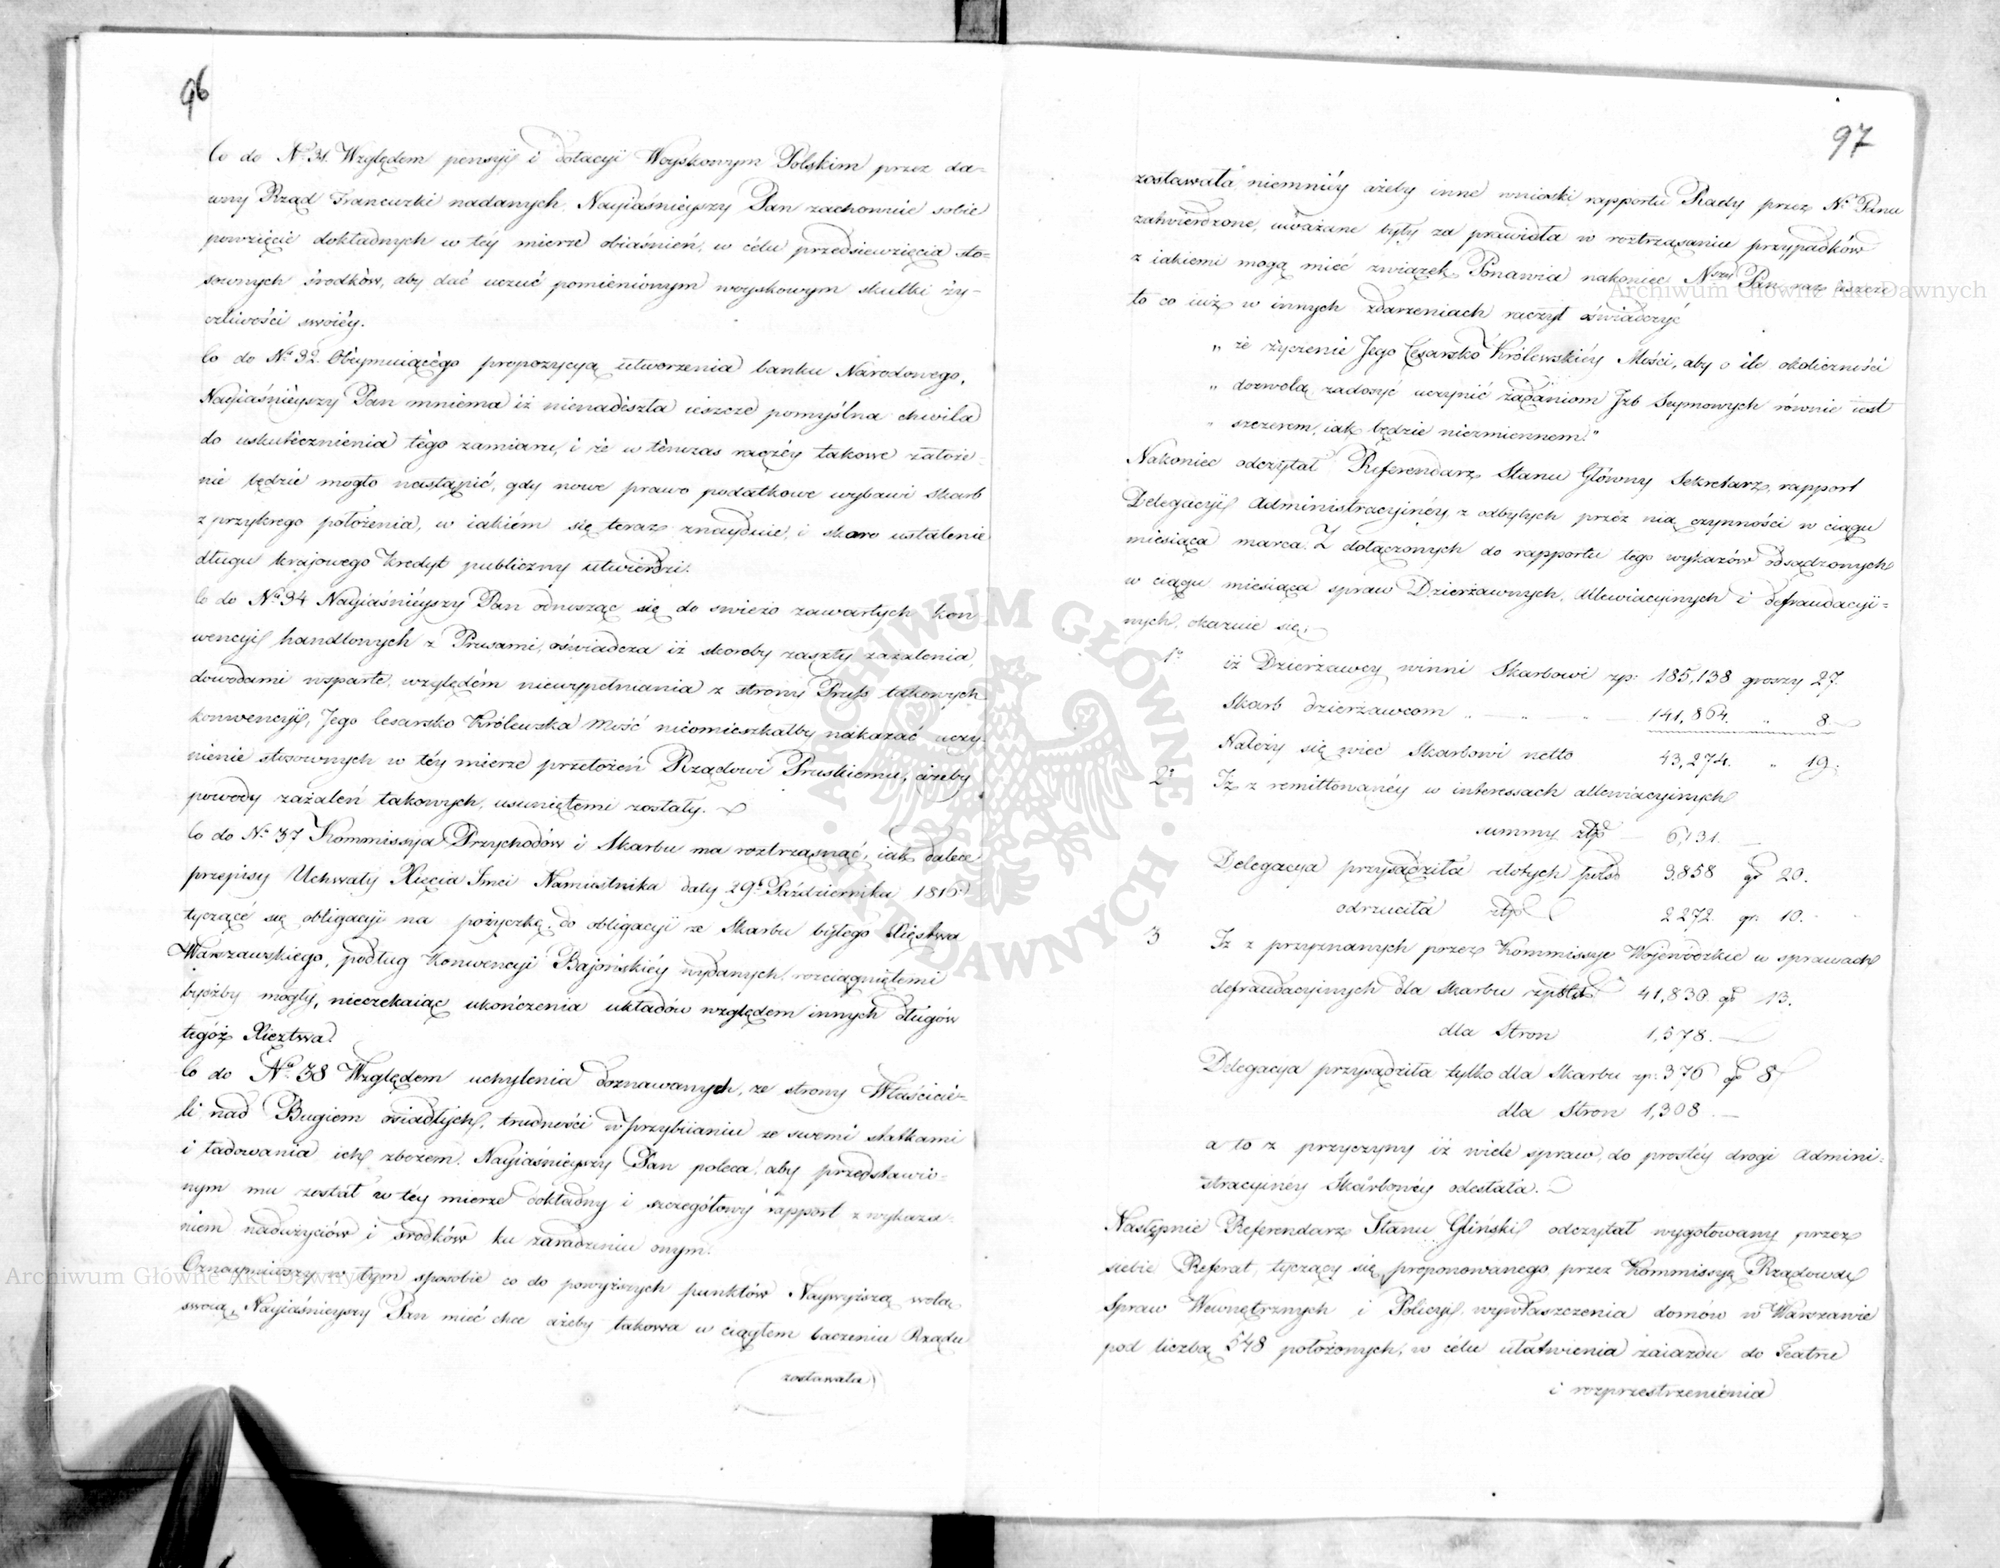 96
Co do Nº 31. Względem pensyi i dotacyi Woyskowym Polskim przez da-
wny Rząd Francuzki nadanych, Nayiaśnieyszy Pan zachowuie sobie
powzięcie dokładnych w téy mierze obiaśnień, w célu przedsiewzięcia sto-
sownych środków, aby dać uczuć pomienionym woyskowym skutki ży-
czliwości swoiéy.
Co do Nº 32. Obéymuiącégo propozycyą utworzenia banku Narodowego,
Nayiaśniéyszy Pan mniema iż nienadészła ieszcze pomyślna chwila
do uskutecznienia tégo zamiaru, i że w ténczas raczéy takowe założe-
nie będzie mogło nastąpić, gdy nowe prawo podatkowe wybawi skarb
z przykrego położenia, w iakiém się teraz znayduie, i skoro ustalenie
długu krajowego kredyt publiczny utwierdzi.
Co do Nº 34 Nayiaśniéyszy Pan odnosząc się do swieżo zawartych kon
wencyi handlowych z Prusami, oświadcza iż skoroby zaszły zażalenia,
dowodami wsparte, względem niewypełniania z strony Pruss takowych
konwencyi, Jego Cesarsko Królewska Mość nieomieszkałby nakazać uczy-
nienie stosownych w téy mierze przełożeń Rządowi Pruskiemu, ażeby
powody zażaleń takowych, usuniętemi zostały.
Co do Nº 37 Kommissya Przychodów i Skarbu ma roztrząsnąć, iak dalece
przepisy Uchwały Xięcia Jmci Namiestnika daty 29º Października 1816.
tyczącé się obligacyi na pożyczkę, do obligacyi ze Skarbu byłego Xięstwa
Warszawskiego, podług Konwencyi Bajońskiéy wydanych, rozciągniętemi
bydźby mogły, nieczekaiąc ukończenia układów względem innych długów
tegóż Xięztwa.
Co do Nº 38 Względem uchylenia doznawanych, ze strony Właścicie-
li nad Bugiem osiadłych, trudności w przybiianiu ze swemi statkami
i ładowania ich zbożem, Nayiaśnieyszy Pan poleca, aby przedstawio-
nym mu został w téy mierze dokładny i szczegółowy rapport z wykaza-
niem nadużyciów i srodków ku zaradzeniu onym.
Oznaymiwszy w tym sposobie co do powyższych punktów Naywyższą wolą
swoią, Nayiaśnieyszy Pan mieć chce ażeby takowa w ciągłem baczeniu Rządu
zostawała
97
zostawała, niemniéy ażeby inne wnioski rapportu Rady przez Nº Pana
zatwierdzone, uważane były za prawidła w roztrząsaniu przypadków
z iakiemi mogą mieć związek. Ponawia nakoniec Nszy Pan raz ieszcze
to co iuż w innych zdarzeniach raczył oświadczyć
„ że życzenie Jego Césarsko Królewskiéy Mości, aby o ile okoliczności
„ dozwolą zadosyć uczynić żądaniom Jzb Seymowych równie iest
„ szczerem, iak będzie niezmiennem."
Nakoniec odczytał Referendarz Stanu Główny Sekretarz, rapport
Delegacyi Administracyjnéy z odbytych przéz nią czynności w ciągu
miesiąca marca. Z dołączonych do rapportu tego wykazów odsądzonych
w ciągu miesiąca spraw Dzierżawnych, allewiacyinych i defraudacyi-
nych, okazuie się,
1º iż Dzierżawcy winni Skarbowi zp: 185,138 groszy 27.
Skarb dzierżawcom „ — „ — 141,864. „ 8
Należy się więc Skarbowi netto 43,274. „ 19.
2º Iż z remittowanéy w interessach allewiacyinych
summy złp — 6,131. —
Delegacya przysądziła złotych pols 3,858 gr 20.
odrzuciła złp 2272. gr. 10.
3 Iż z przyznanych przez Kommissye Wojewódzkie w sprawach
defraudacyinych dla Skarbu 41,830 gr 13.
dla Stron 1,578. —
Delegacya przysądziła tylko dla Skarbu zp. 376 gr 8
dla Stron 1,308. —
a to z przyczyny iż wiele spraw, do prostéy drogi Admini-
stracyiney Skarbowéy odesłała.
Następnie Referendarz Stanu Gliński odczytał wygotowany przez
siebie Referat, tyczący się proponowanego przez Kommissyą Rządową
Spraw Wewnętrznych i Policyi, wywłaszczenia domów w Warszawie
pod liczbą 548 położonych, w célu ułatwienia zaiazdu do Teatru
i rozprzestrzenienia
Archiwum Główne Akt Dawnych
Archiwum Główne Akt Dawnych
ARCHIWUM GŁÓWNE AKT DAWNYCH